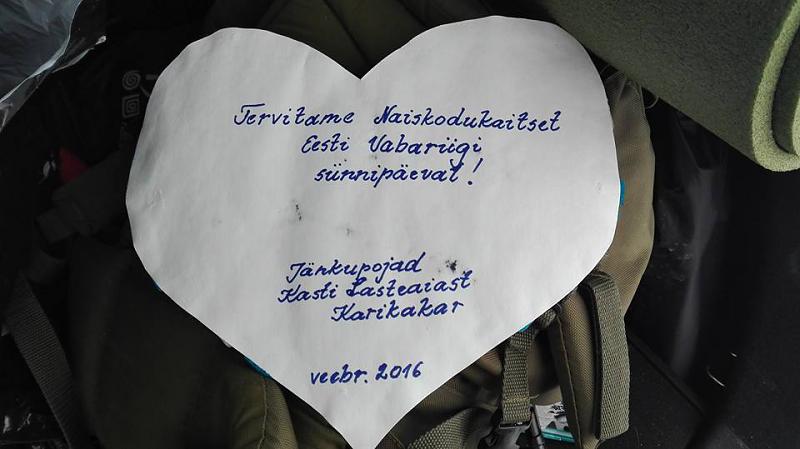 Tervitame Naiskodukaitset
Eesti Vabariigi
sünnipäeval!
Jänkupojad
Kasti Lasteaiast
Karikakar
veebr. 2016